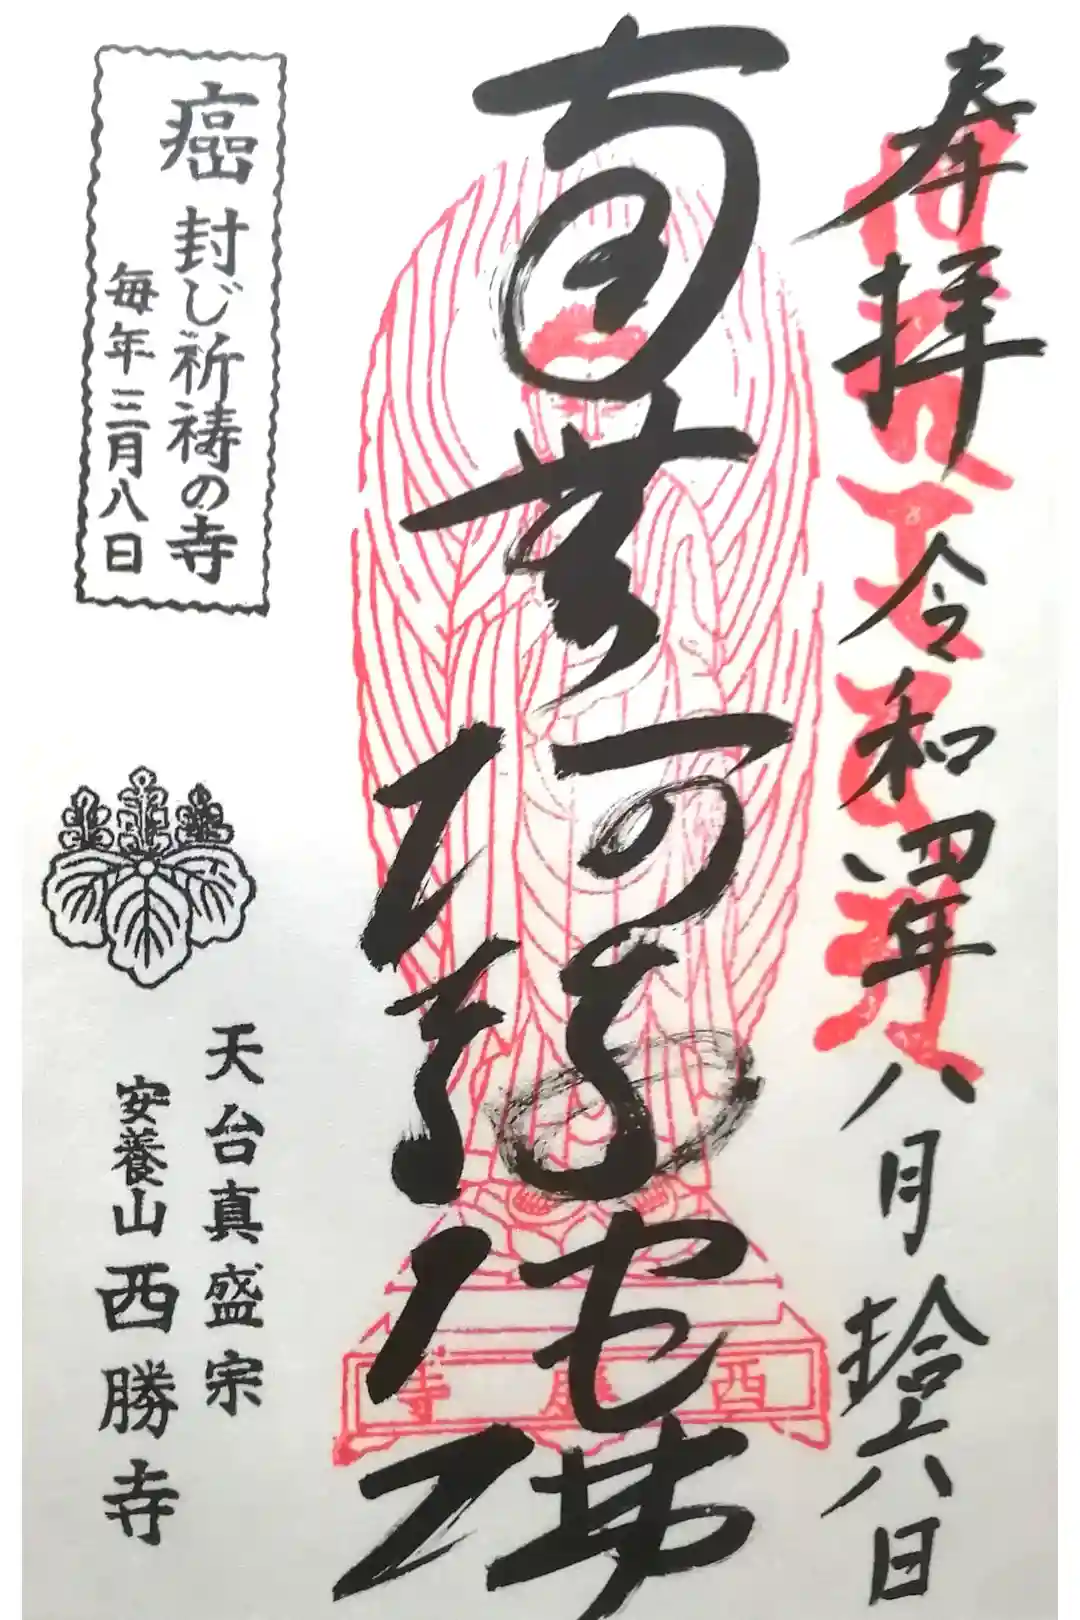 奉拝 令和四年八月拾六日
南無阿弥陀佛
西勝寺
癌封じ祈祷の寺
毎年三月八日
天台真盛宗
安養山 西勝寺